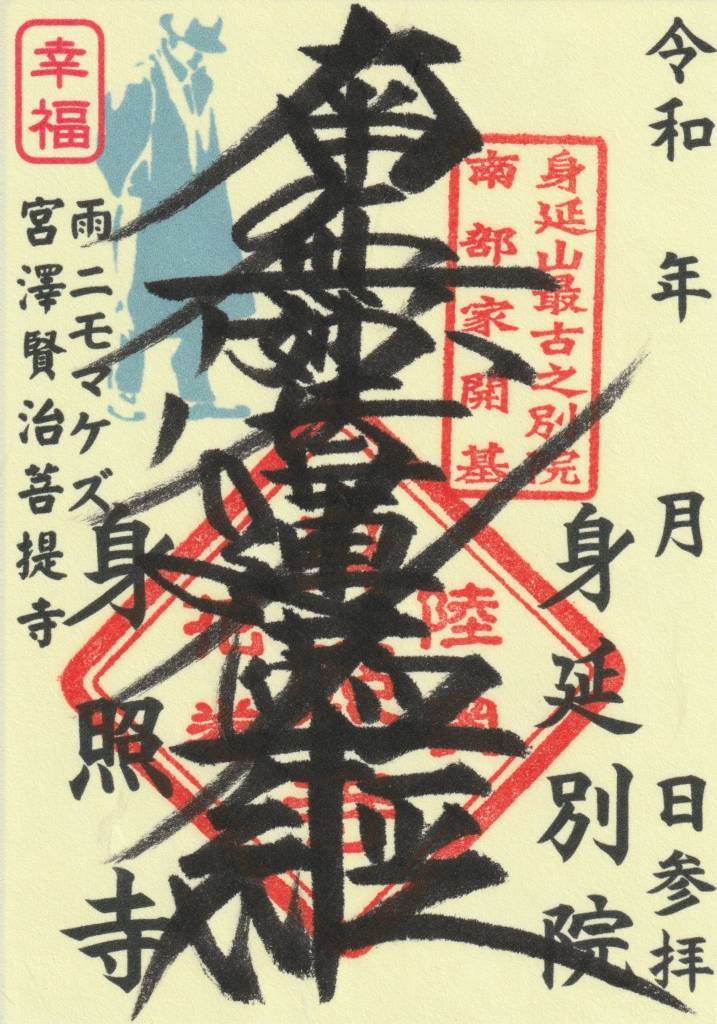 令和 年 月 日参拝
身延別院
身延山最古之別院
南部家開基
南無妙法蓮華経
身照寺
幸福
雨ニモマケズ
宮澤賢治菩提寺
陸